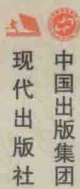 中国出版集团
现代出版社